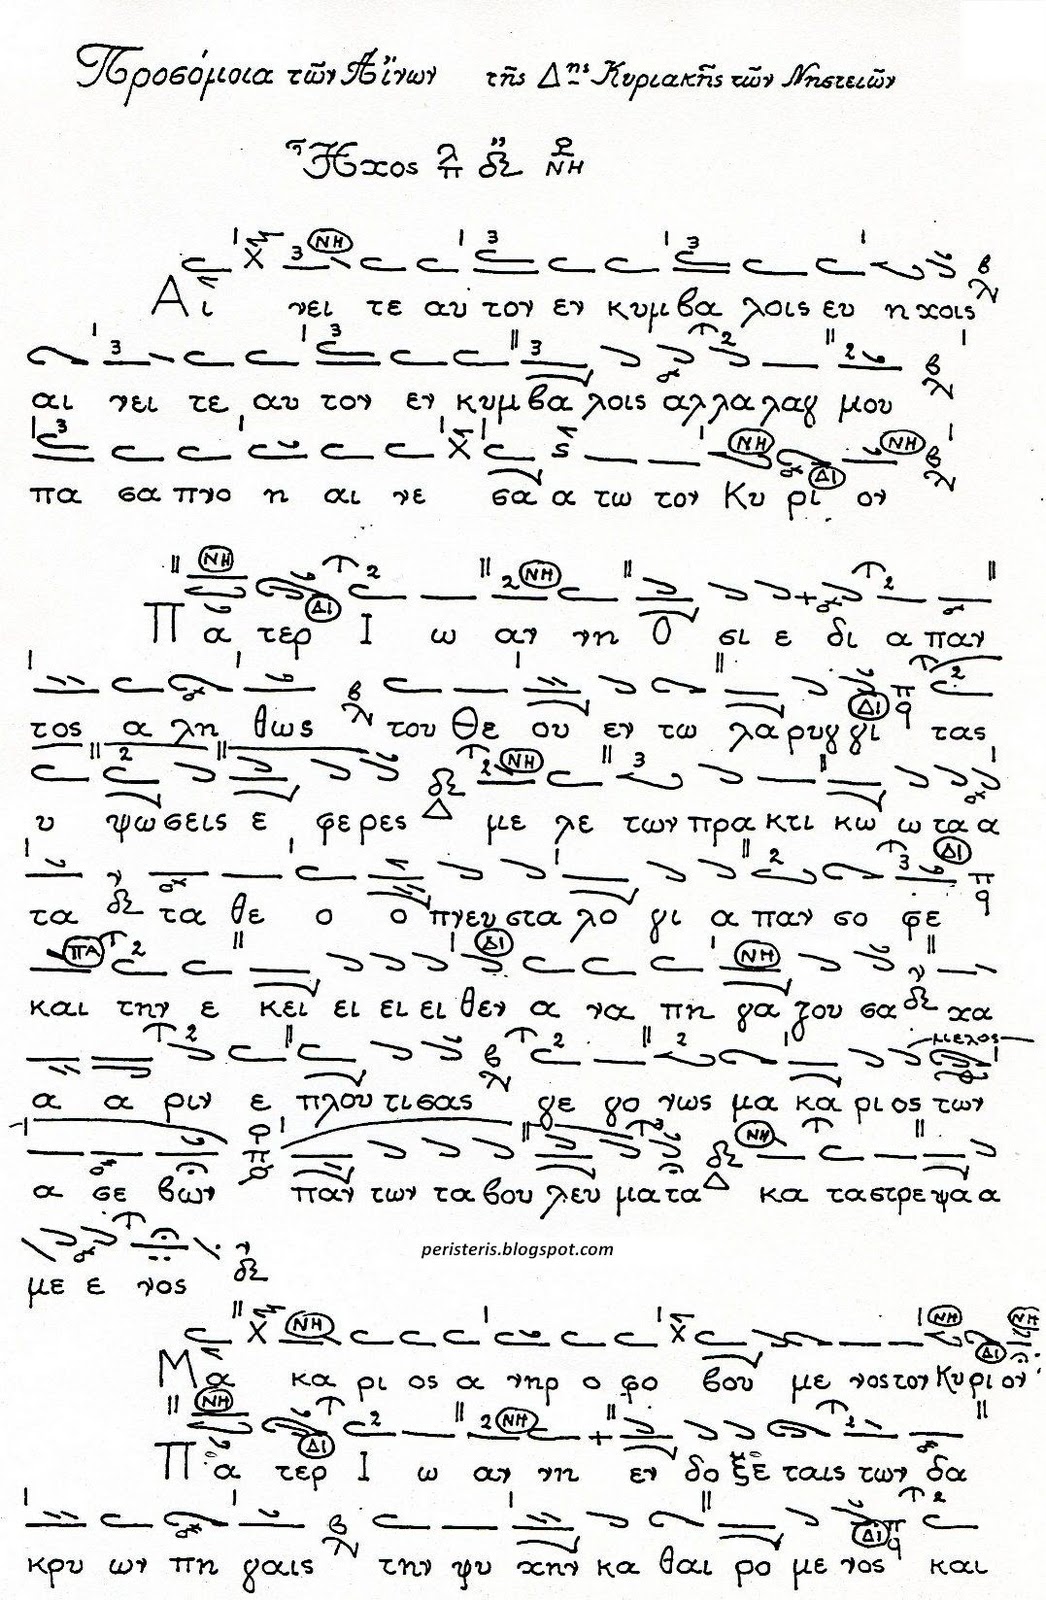 Προσόμοια τῶν Αἴνων τῆς Δης Κυριακῆς τῶν Νηστειῶν
Ἦχος λπ δ̈ι ΝΗ
Αι νει τε αυ τον εν κυμ βα λοις ευ η χοις
αι νει τε αυ τον εν κυμ βα λοις αλ λα λαγ μου
πα σα πνο η αι νε σα α τω τον Κυ ρι ον
Πα τερ Ι ω αν νη Ο σι ε δι α παν
τος α λη θως του Θε ου εν τω λα ρυγ γι τας
υ ψω σεις ε φε ρες με λε των πρα κτι κω ω τα α
τα τα θε ο ο πνευ στα λο γι α παν σο φε
και την ε κει ει ει ει θεν α να πη γα ζου σα χα
α α ριν ε πλου τι σας γε γο νως μα κα ρι ος των
α σε βων παν των τα βου λευ μα τα κα τα στρε ψα α
με ε νος
peristeris.blogspot.com
Μα κα ρι ος α νηρ ο φο βου με νος τον Κυ ρι ον
Πα τερ Ι ω αν νη εν δο ξε ταις των δα
κρυ ων πη γαις την ψυ χην κα θαι ρο με νος και